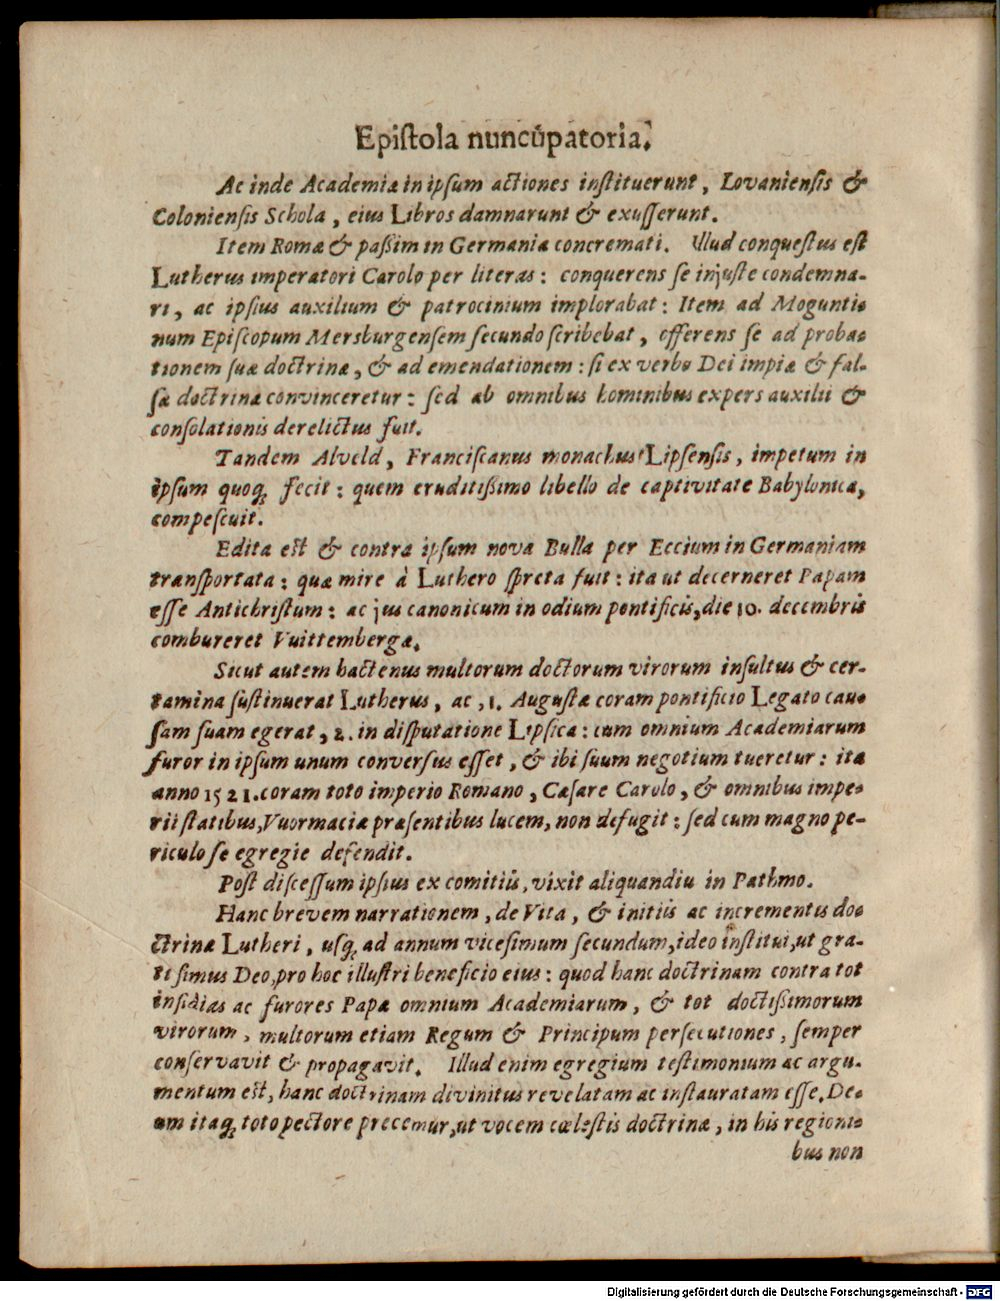 Epiſtola nuncupatoria.
Ac inde Academiæ in ipſum actiones inſtituerunt, Lovanienſis &
Colonienſis Schola, eius Libros damnarunt & exuſſerunt.
Item Romæ & paßim in Germania concremati. Illud conqueſtus eſt
Lutherus imperatori Carolo per literas: conquerens ſe injuſte condemna-
ri, ac ipſius auxilium & patrocinium implorabat: Item ad Mogunti-
num Epiſcopum Mersburgenſem ſecundo ſcribebat, offerens ſe ad proba-
tionem ſuæ doctrinæ, & ad emendationem: ſi ex verbo Dei impiæ & fal-
ſæ doctrinæ convinceretur: ſed ab omnibus hominibus expers auxilii &
conſolationis derelictus fuit.
Tandem Alveld, Franciſcanus monachus Lipſenſis, impetum in
ipſum quoq; fecit: quem eruditißimo libello de captivitate Babylonica,
compeſcuit.
Edita eſt & contra ipſum nova Bulla per Eccium in Germaniam
tranſportata: quæ mire à Luthero ſpreta fuit: ita ut decerneret Papam
eſſe Antichriſtum: ac jus canonicum in odium pontificis, die 10. decembris
combureret Vuittembergæ.
Sicut autem hactenus multorum doctorum virorum inſultus & cer-
tamina ſuſtinuerat Lutherus, ac, 1. Auguſtæ coram pontificio Legato cau-
ſam ſuam egerat, 2. in diſputatione Lipſica: cum omnium Academiarum
furor in ipſum unum converſus eſſet, & ibi ſuum negotium tueretur: ita
anno 1521. coram toto imperio Romano, Cæſare Carolo, & omnibus impe-
rii ſtatibus, Vuormaciæ præſentibus lucem, non defugit: ſed cum magno pe-
riculo ſe egregie defendit.
Poſt diſceſſum ipſius ex comitiis, vixit aliquandiu in Pathmo.
Hanc brevem narrationem, de Vita, & initiis ac incrementis do-
ctrinæ Lutheri, uſq; ad annum viceſimum ſecundum, ideo inſtitui, ut gra-
ti ſimus Deo, pro hoc illuſtri beneficio eius: quod hanc doctrinam contra tot
inſidias ac furores Papæ omnium Academiarum, & tot doctißimorum
virorum, multorum etiam Regum & Principum perſecutiones, ſemper
conſervavit & propagavit. Illud enim egregium teſtimonium ac argu-
mentum eſt, hanc doctrinam divinitus revelatam ac inſtauratam eſſe. De-
um itaq; toto pectore precemur, ut vocem cœleſtis doctrinæ, in his regioni-
bus non
Digitalisierung gefördert durch die Deutsche Forschungsgemeinschaft - DFG